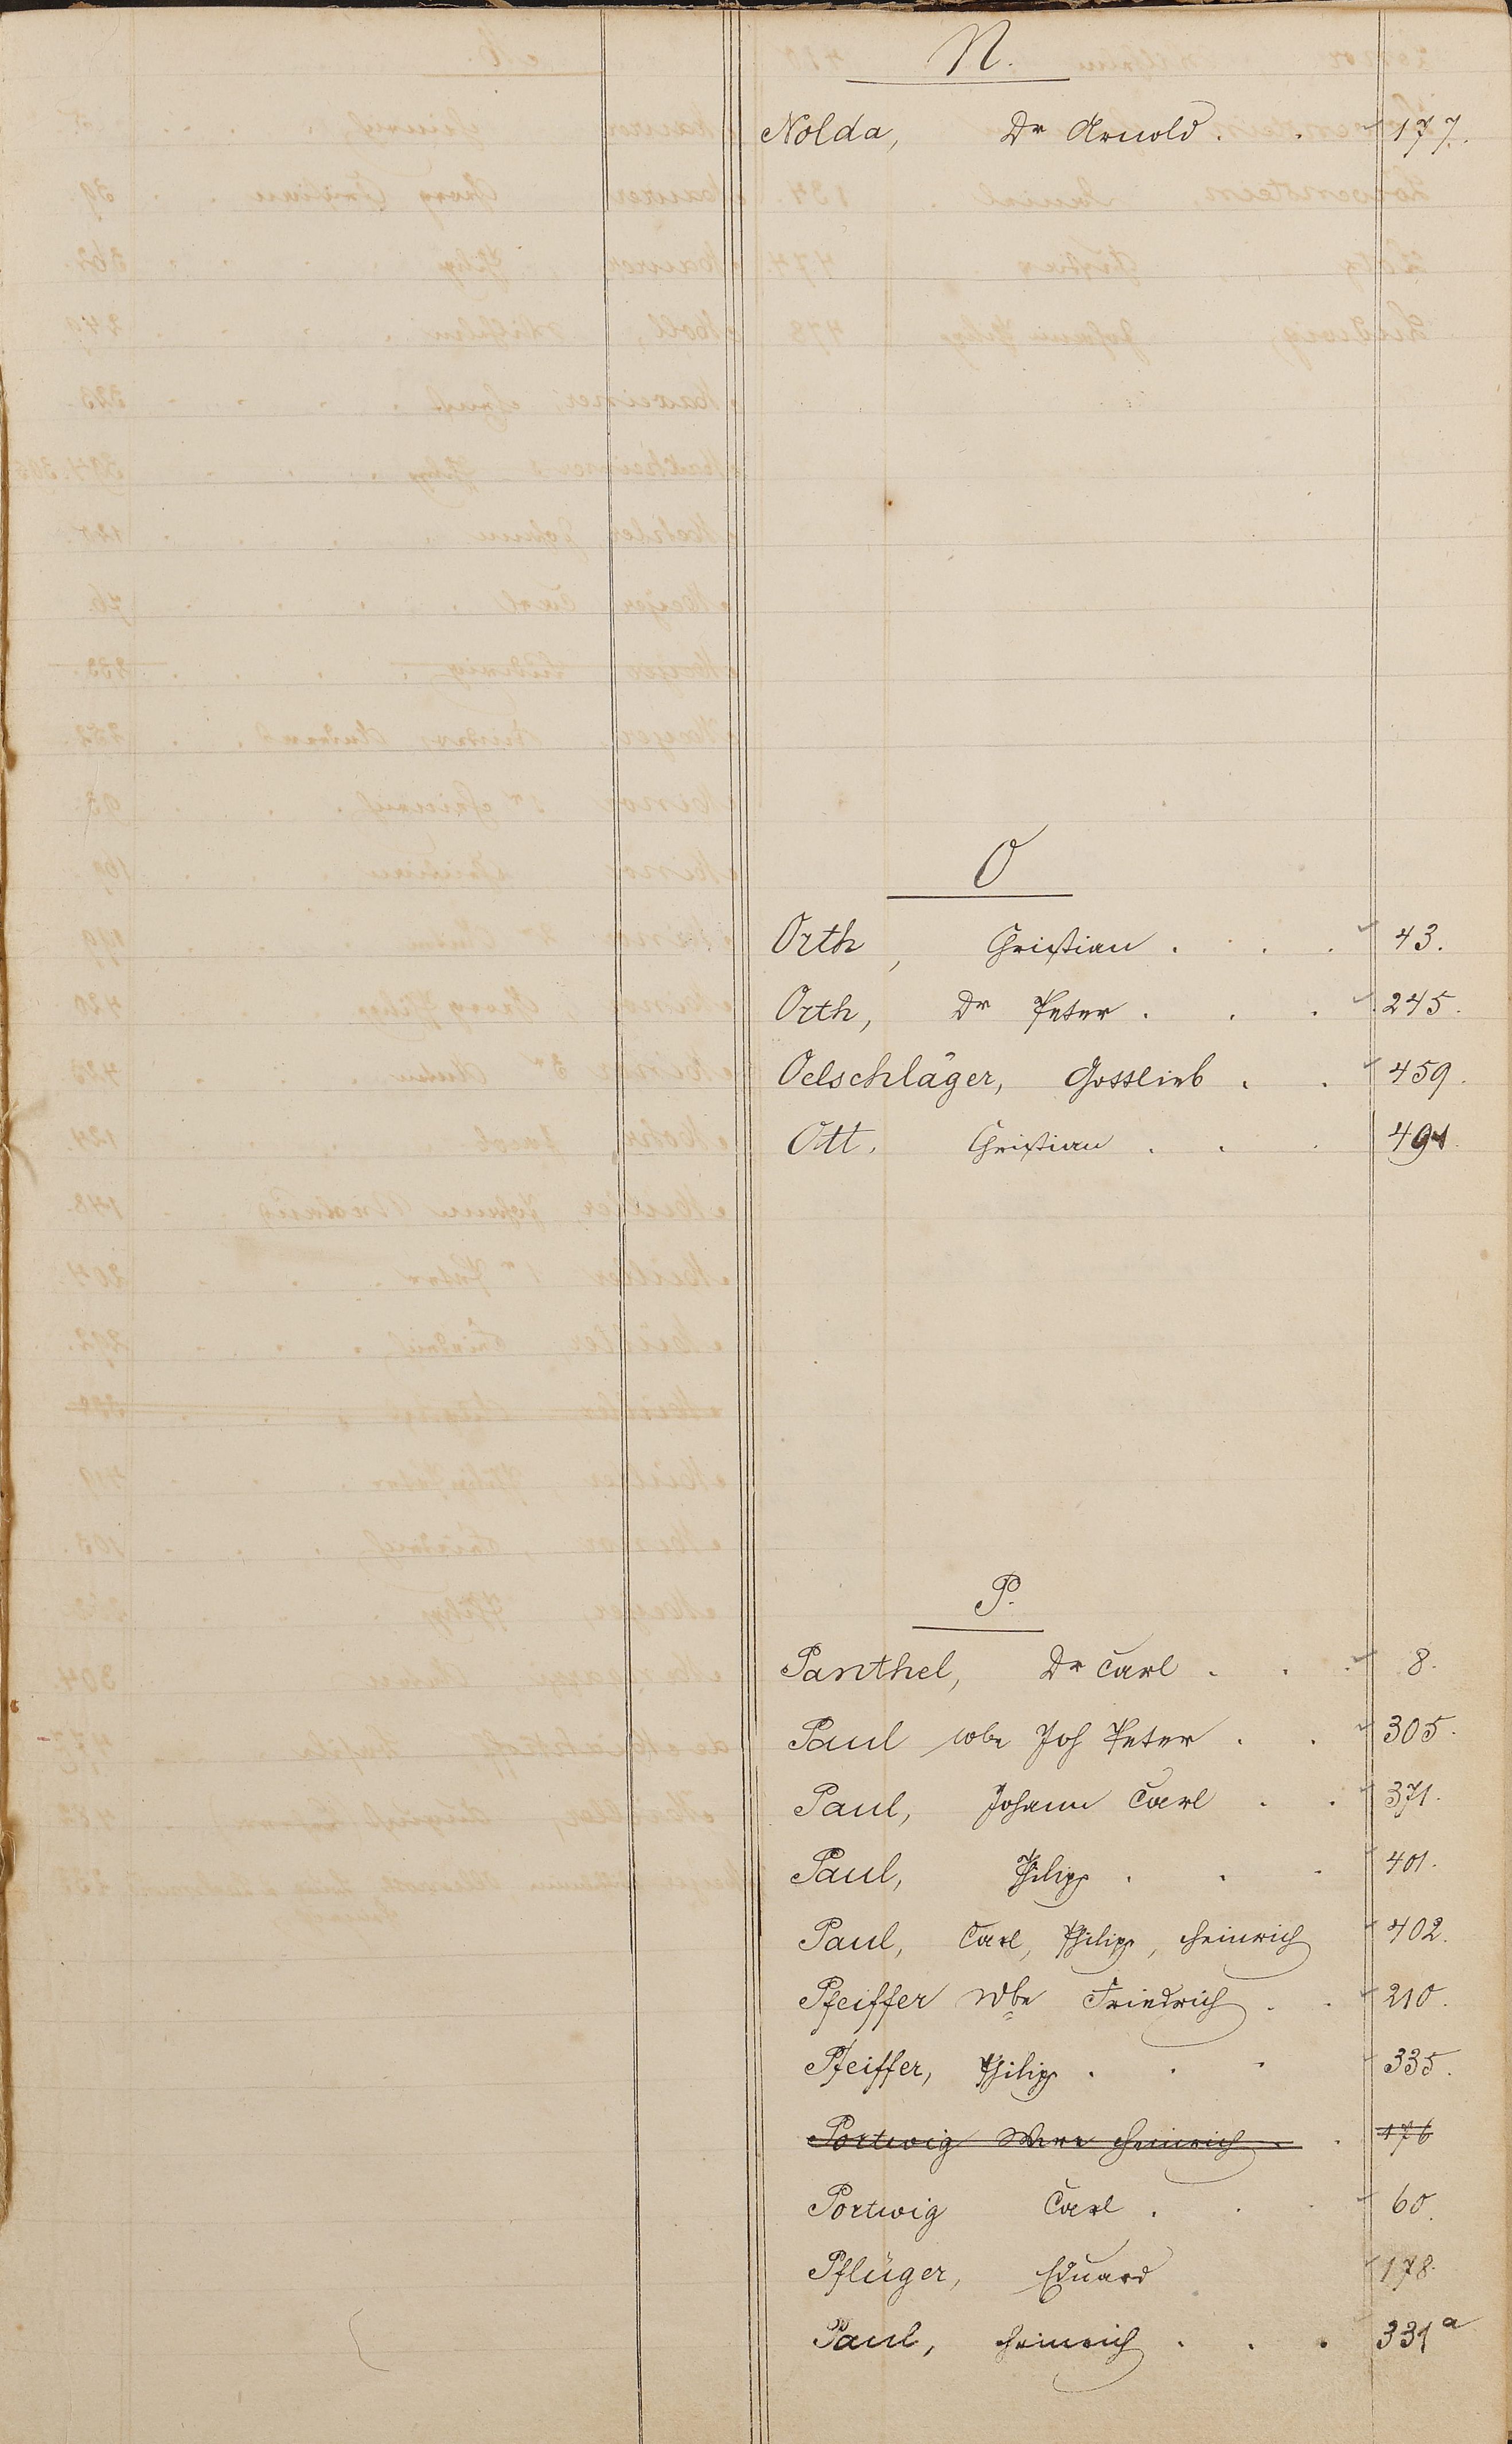 N.
Nolda, Dr Arnold . . 177.
O
Orth, Christian . . . 43.
Orth, Dr Peter . . . 245.
Oelschläger, Gottlieb . . 459.
Ott. Christian . . . 491.
P.
Panthel, Dr Carl . . . 8.
Paul wbe Joh Peter . . 305.
Paul, Johann Carl . . 371.
Paul, Philipp . . . 401.
Paul, Carl, Philipp, Heinrich 402.
Pfeiffer Wbe Friedrich . . 210.
Pfeiffer, Philipp . . . 335.
Portwig Heinrich . . 176
Portwig Carl . . . 60.
Pflüger, Eduard 178.
Paul, Heinrich . . . 331a